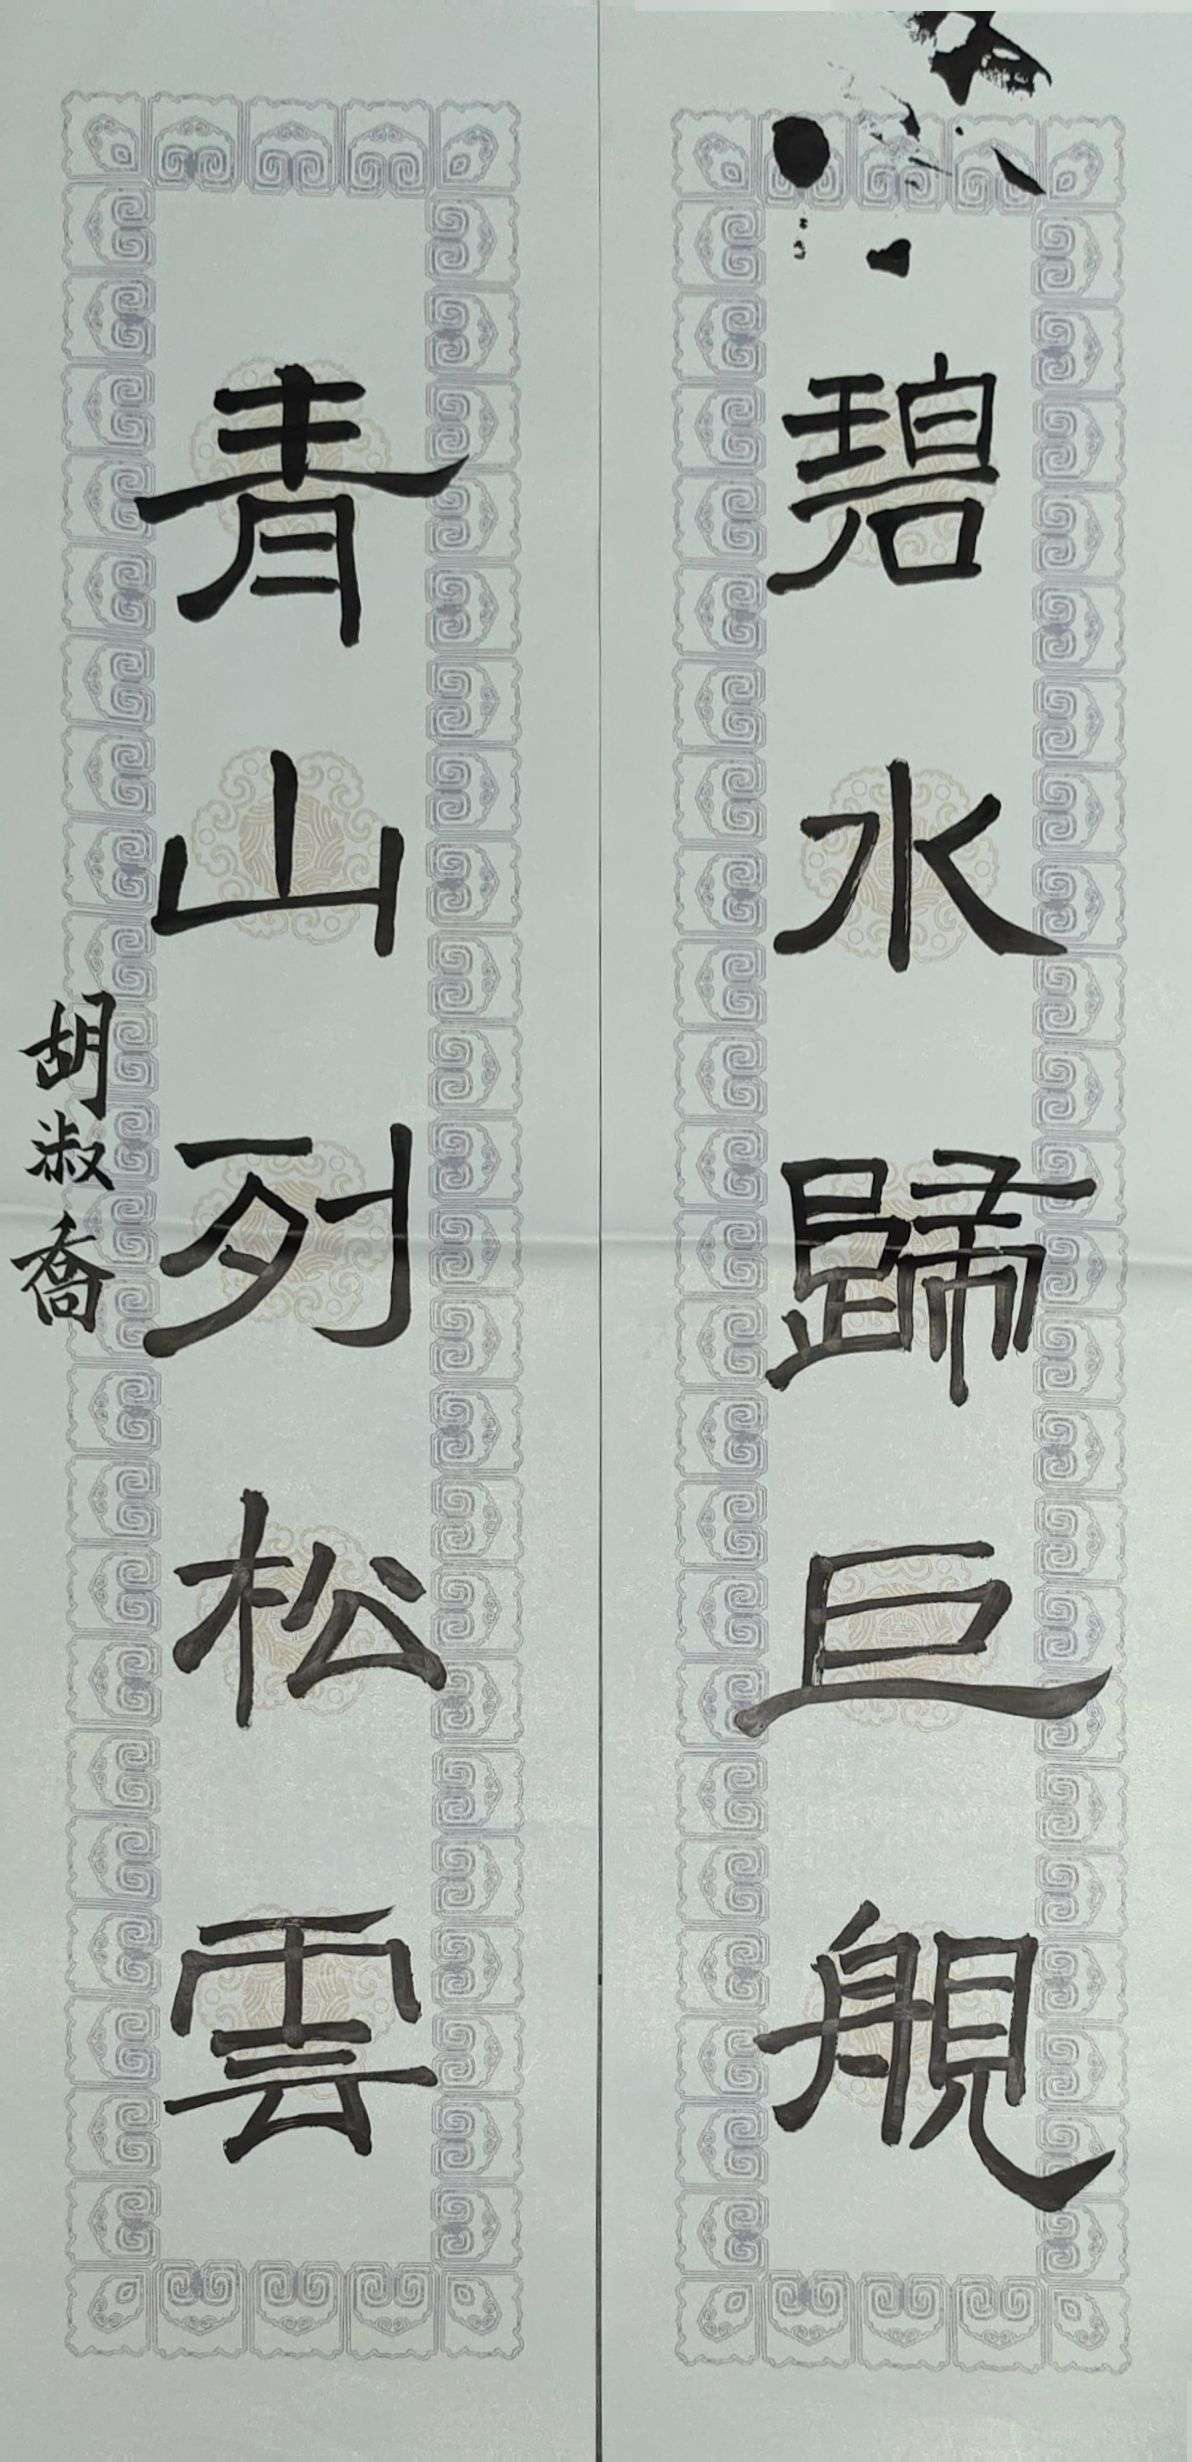 碧水歸巨舰
青山列松雲
胡淑喬